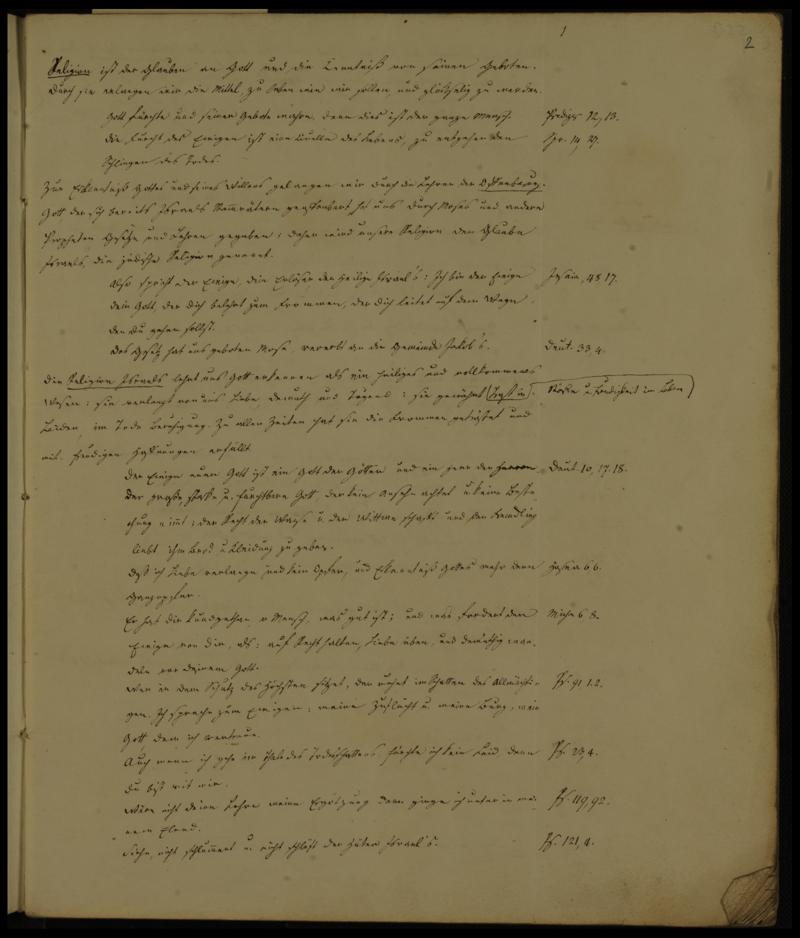 1
2
Religion ist der Glauben an Gott und die Kenntniß von seinen Geboten.
Durch sie erlangen wir die Mittel, zu leben wie wir sollen und glückselig zu werden.
Gott fürchte und seine Gebote wahre, denn dies ist der ganze Mensch. Prediger 12, 13.
die Furcht des Ewigen ist eine Quelle des Lebens, zu entgehen den Spr. 14, 27.
Schlingen des Todes.
Zur Erkenntniß Gottes und seines Willens gelangen wir durch die Lehren der Offenbarung.
Gott der sich bereits Israels Stammvätern geoffenbart hat uns durch Moses und andere
Propheten Gesetze und Lehren gegeben; daher wird unsere Religion der Glaube
Israels, die jüdische Religion genannt.
Also spricht der Ewige, dein Erlöser der heilige Israel's: Ich bin der Ewige Jesaia, 48 17.
dein Gott, der dich belehrt zum Frommen, der dich leitet auf dem Wege
den du gehen sollst.
Das Gesetz hat uns geboten Mose, vererbt an die Gemeinde Jakob's. Deut. 33, 4.
Die Religion Israels lehrt uns Gott erkennen als ein heiliges und vollkommenes
Wesen; sie verlangt von uns Liebe, Demuth und Tugend; sie gewährt Trost im
Leiden, im Tode Beruhigung. Zu allen Zeiten hat sie die Frommen getröstet und
mit freudigen Hoffnungen erfüllt.
Der Ewige euer Gott ist ein Gott der Götter und ein Herr der Herren Deut. 10, 17. 18.
der große, starke u. furchtbare Gott der kein Ansehn achtet u. keine Beste
chung nimmt; der Recht der Waise u. der Wittwe schafft und den Fremdling
liebt ihm Brod u Kleidung zu geben.
Daß ich Liebe verlange und kein Opfer, und Erkenntniß Gottes mehr denn Hosea 6 6.
Ganzopfer.
Er hat dir kundgethan o Mensch, was gut ist; und was fordert der Micha 6 8.
Ewige von dir, als: auf Recht halten, Liebe üben, und demüthig wan-
deln vor deinem Gott.
Wer in dem Schutz des Höchsten sitzet, der ruhet im Schatten des Allmächti- Ps. 91 1.2.
gen. Ich spreche zum Ewigen; meine Zuflucht u. meine Burg, mein
Gott dem ich vertraue.
Auch wenn ich gehe im Thale des Todesschattens fürchte ich kein Leid denn Ps. 23, 4.
du bist mit mir.
Wäre nicht deine Lehre meine Ergötzung dann ginge ich unter in mei- Ps. 119, 92.
nem Elend.
Siehe, nicht schlummert u. nicht schläft der Hüter Israel's. Ps. 121, 4.